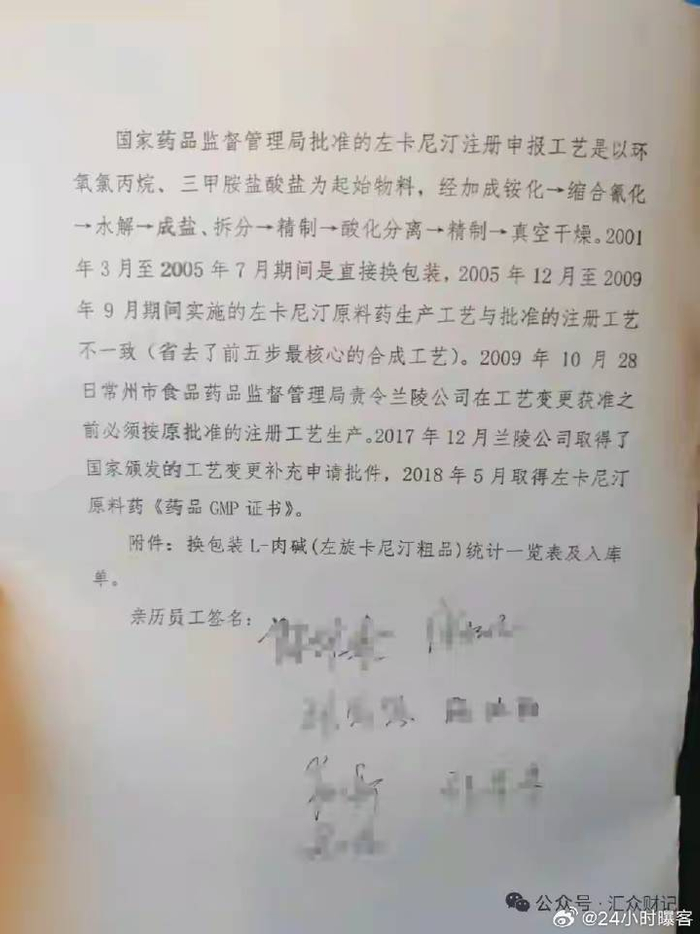 国家药品监督管理局批准的左卡尼汀注册申报工艺是以环
氧氯丙烷、三甲胺盐酸盐为起始物料，经加成铵化→缩合氰化
→水解→成盐、拆分→精制→酸化分离→精制→真空干燥。2001
年3月至2005年7月期间是直接换包装，2005年12月至2009
年9月期间实施的左卡尼汀原料药生产工艺与批准的注册工艺
不一致（省去了前五步最核心的合成工艺）。2009年10月28
日常州市食品药品监督管理局责令兰陵公司在工艺变更获准之
前必须按原批准的注册工艺生产。2017年12月兰陵公司取得了
国家颁发的工艺变更补充申请批件，2018年5月取得左卡尼汀
原料药《药品GMP证书》。
附件：换包装L-肉碱(左旋卡尼汀粗品)统计一览表及入库
单。
亲历员工签名：
公众号·汇众财记
@24小时曝客